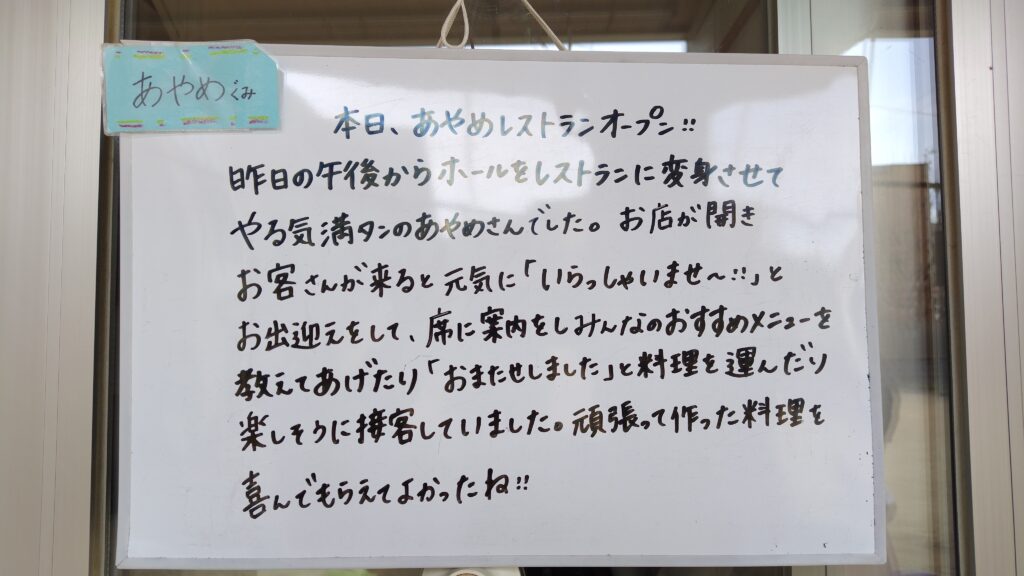 あやめぐみ
本日、あやめレストランオープン!!
昨日の午後からホールをレストランに変身させて
やる気満タンのあやめさんでした。お店が開き
お客さんが来ると元気に「いらっしゃいませ～!!」と
お出迎えをして、席に案内をしみんなのおすすめメニューを
教えてあげたり「おまたせしました」と料理を運んだり
楽しそうに接客していました。頑張って作った料理を
喜んでもらえてよかったね!!